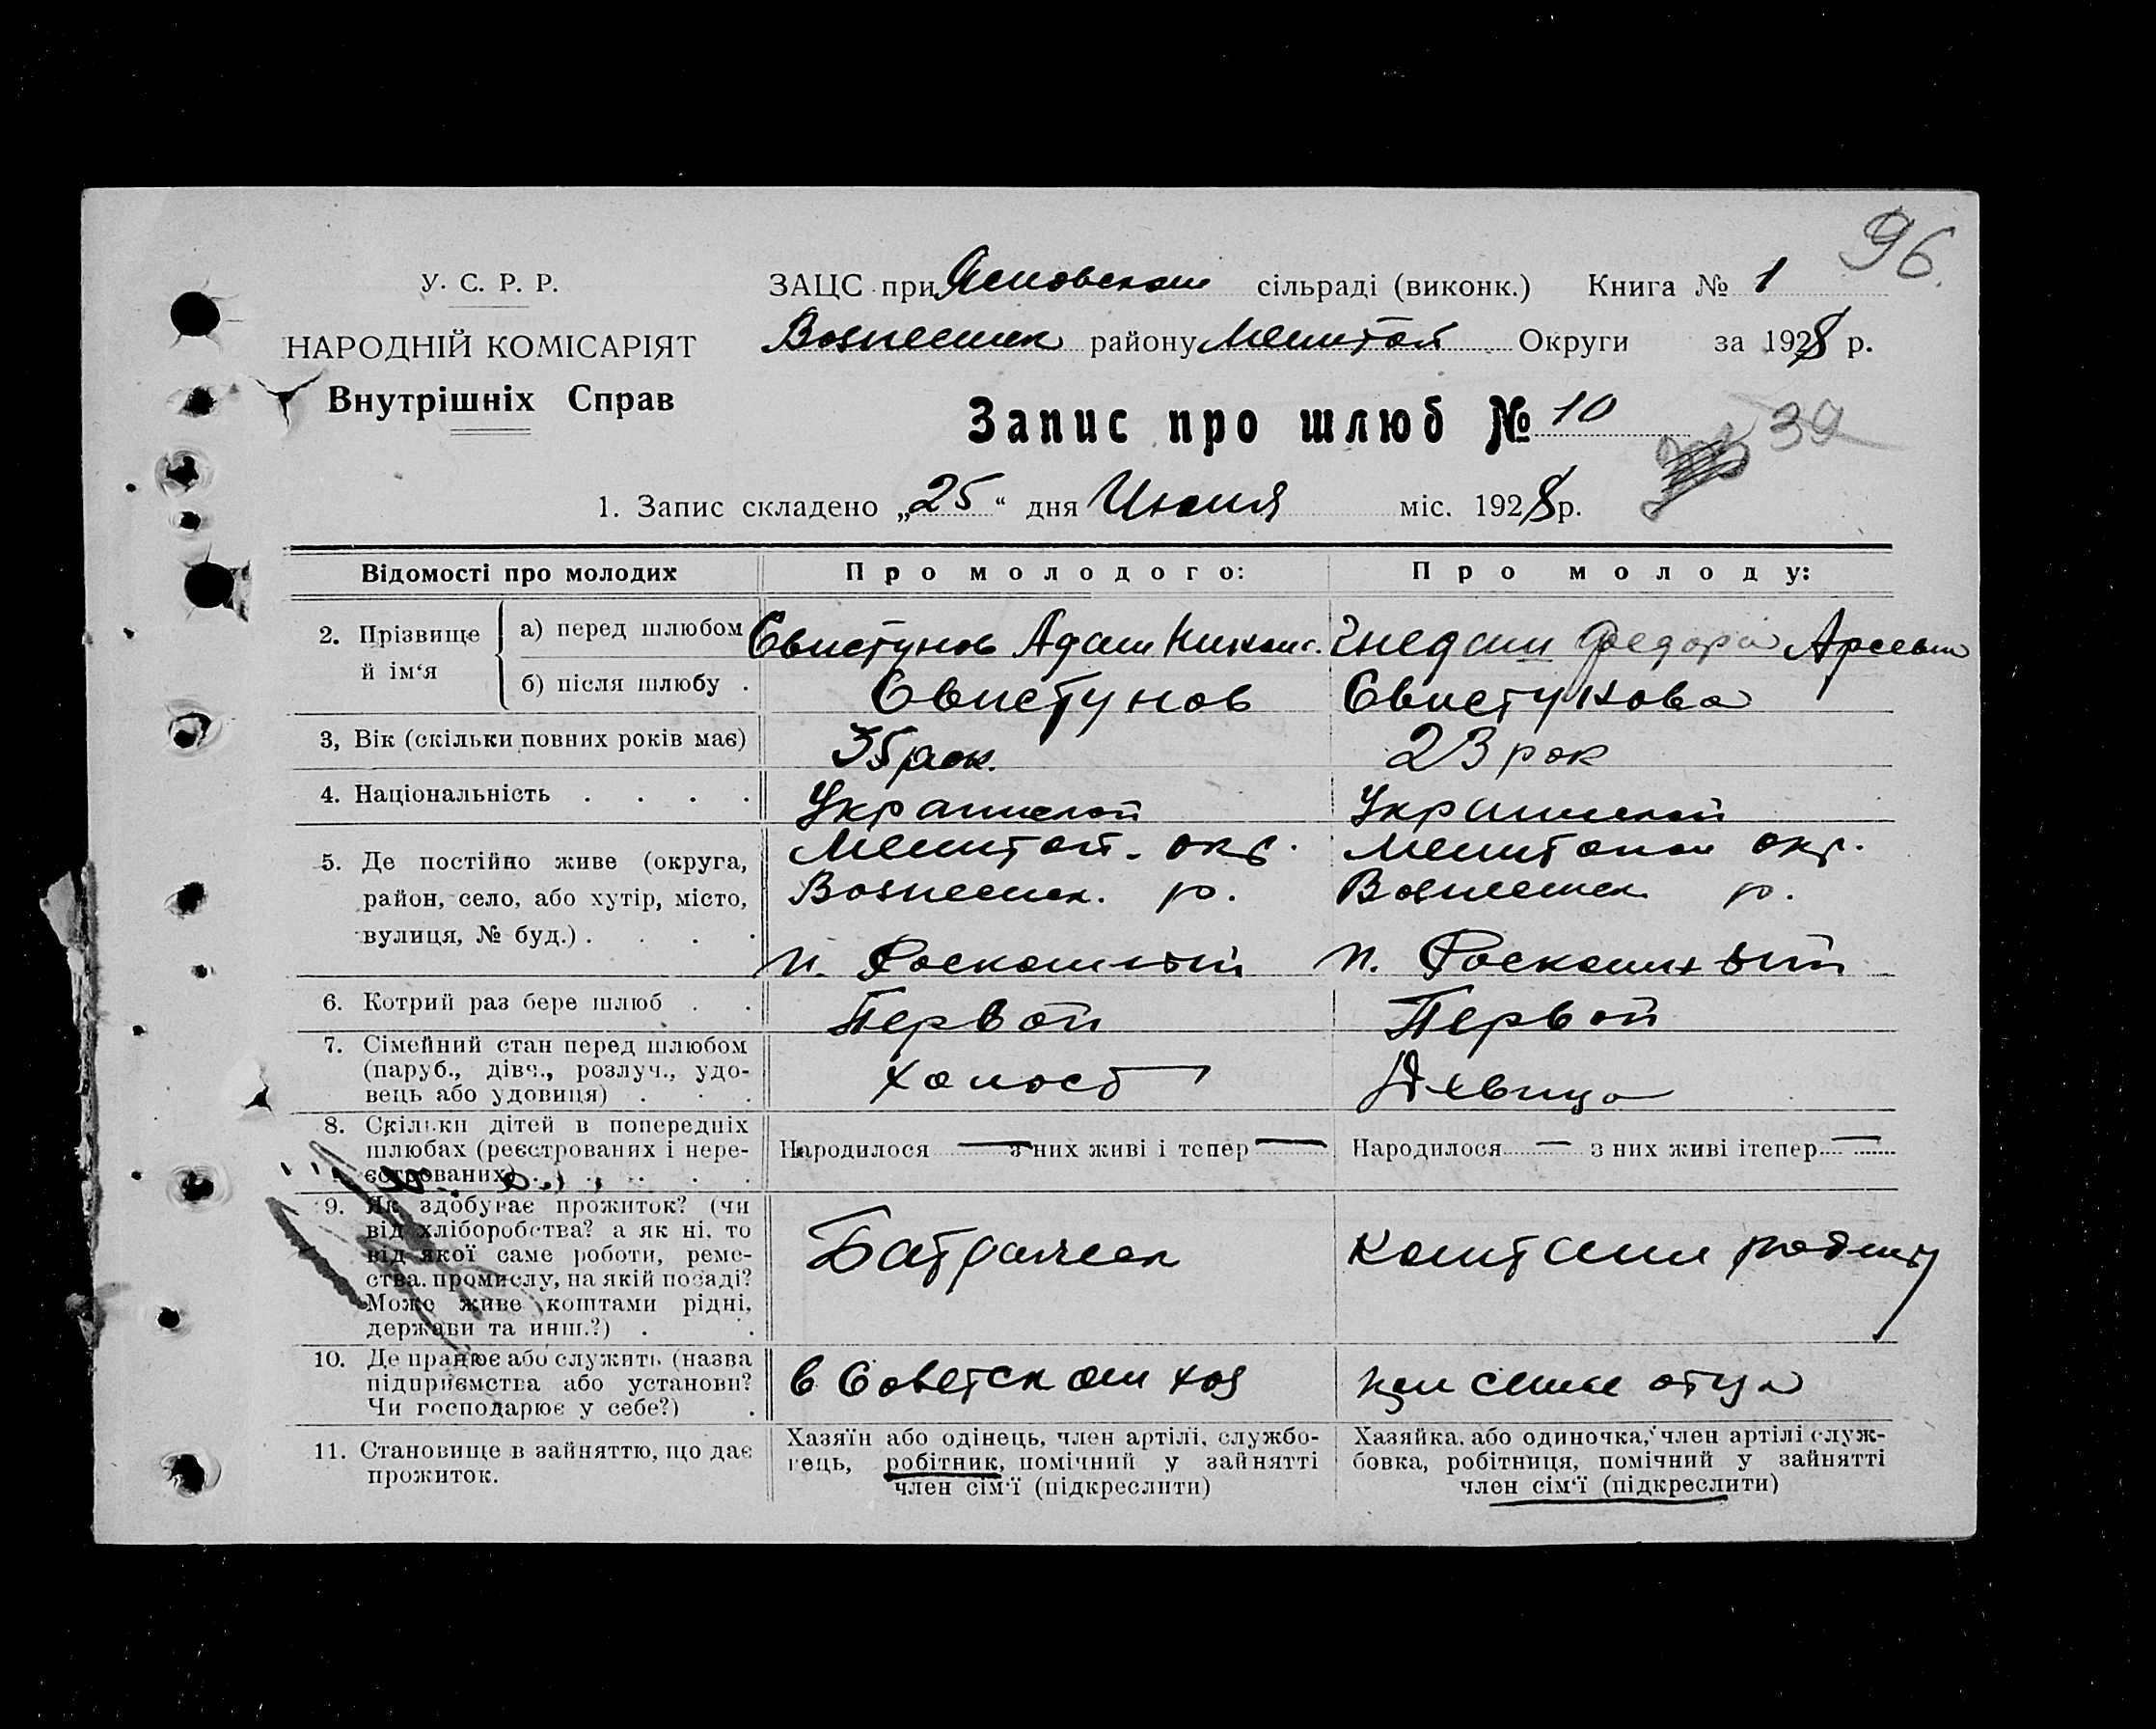 96.
У. С. Р. Р.
НАРОДНІЙ КОМІСАРІЯТ
Внутрішніх Справ
ЗАЦС при сільраді (виконк.) Книга № 1
Вознесенск району Мелитоп Округи за 1928 р.
Запис про шлюб № 10
39
1. Запис складено „25“ дня Июня міс. 1928 р.
Відомості про молодих Про молодого: Про молоду:
2. Прізвище й ім‘я
а) перед шлюбом Свистунов Адам Никон. Гнедаш Федора Арсеьт
б) після шлюбу . Свистунов Свистунова
3, Вік (скільки повних років має) 35 рок. 23 рок
4. Національність . . . . Украинской Украинской
5. Де постійно живе (округа,
район, село, або хутір, місто,
вулиця, № буд.) . . . .
Мелитоп. окр. Мелитопол окр.
Вознесенск. р. Вознесенск р.
п. Роскошный п. Роскошный
6. Котрий раз бере шлюб . . Первой Первой
7. Сімейний стан перед шлюбом
(паруб., дівч., розлуч., удо-
вець або удовиця) . . .
Холост Девица
8. Скільки дітей в попередніх
шлюбах (реєстрованих і нере-
єстрованих) . . . . .
Народилося — з них живі і тепер — Народилося — з них живі ітепер —
9. Як здобуває прожиток? (чи
від хліборобства? а як ні, то
від якої саме роботи, реме-
ства, промислу, на якій посаді?
Може живе коштами рідні,
держави та инш.?) . .
Батраческ
10. Де працює або служить (назва
підприємства або установи?
Чи господарює у себе?) .
в Советском хоз при семье отца
11. Становище в зайняттю, що дає
прожиток.
Хазяїн або одінець, член артілі, службо-
вець, робітник, помічний у зайнятті
член сім‘ї (підкреслити)
Хазяйка, або одиночка, член артілі служ-
бовка, робітниця, помічний у зайнятті
член сім‘ї (підкреслити)